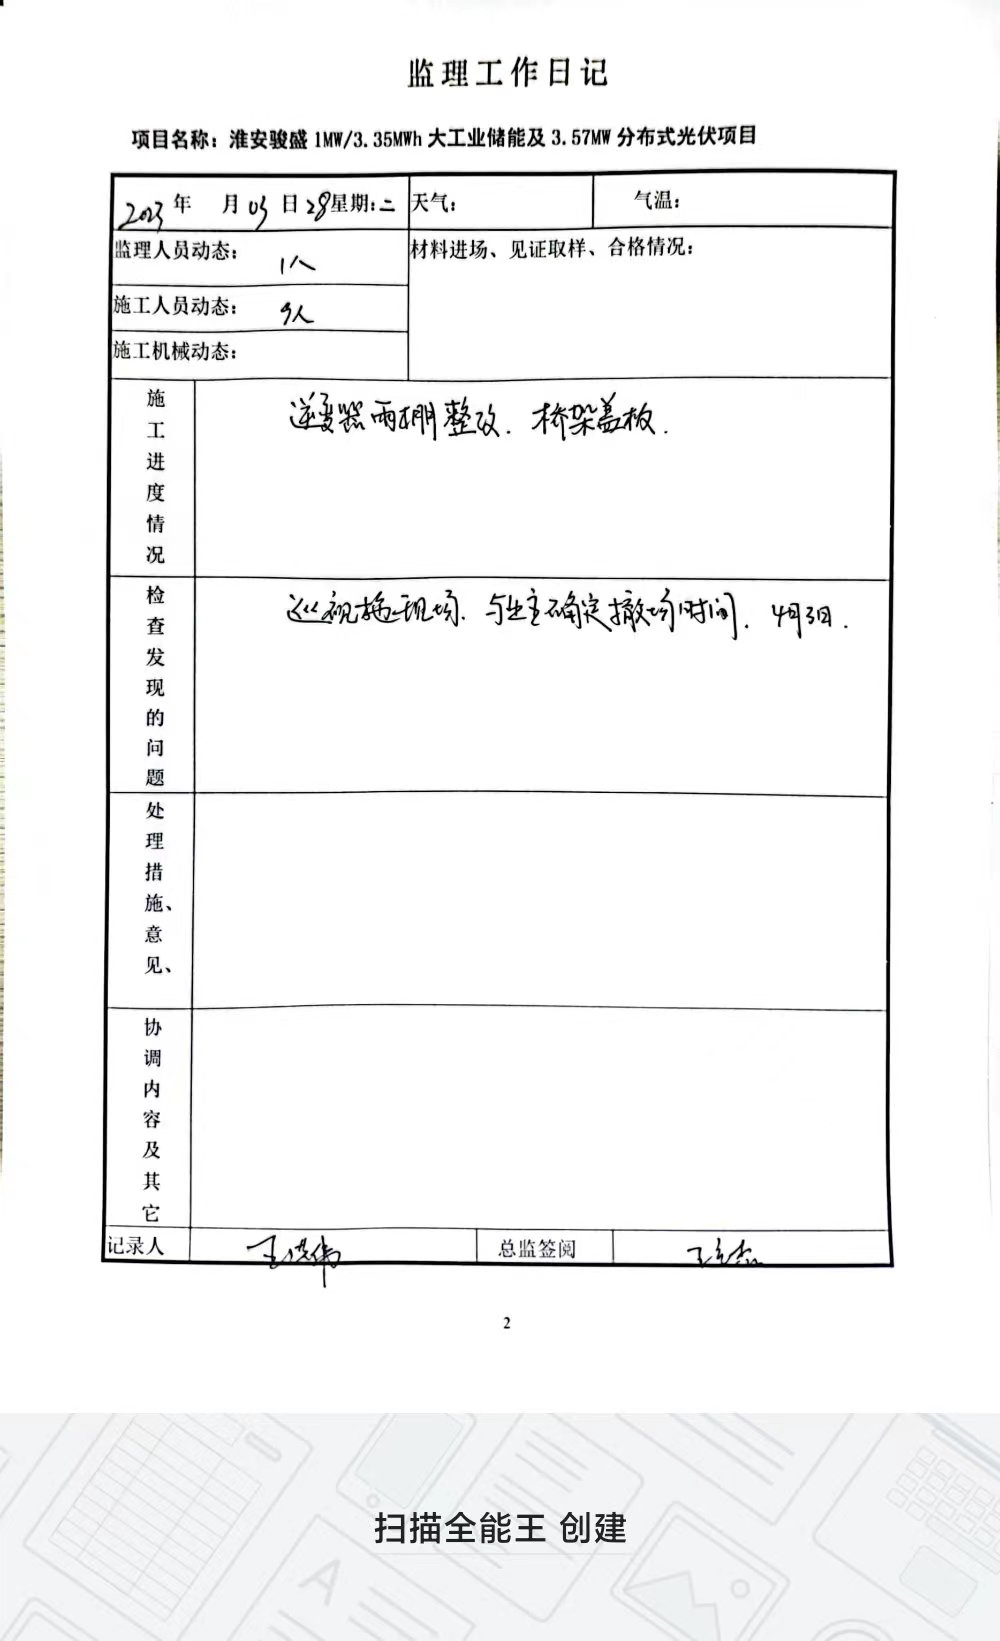 监理工作日记
项目名称：淮安骏盛 1MW/3.35MWh 大工业储能及 3.57MW 分布式光伏项目
2023 年 月 03 日 28 星期：二 天气： 气温：
监理人员动态： 1人 材料进场、见证取样、合格情况：
施工人员动态： 9人
施工机械动态：
施工进度情况 逆变器雨棚整改．桥架盖板．
检查发现的问题 巡视施工现场．与业主确定撤场时间．4月3日．
处理措施、意见、
协调内容及其它
记录人 王洪伟 总监签阅
2
扫描全能王 创建